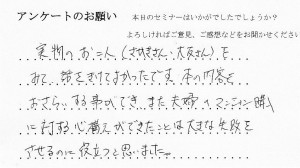 アンケートのお願い
本日のセミナーはいかがでしたでしょうか？
よろしければご意見、ご感想などをお聞かせください
実物のお二人（さかきさん・大友さん）を
みて、話をきけてよかったです。本の内容を
おさらいする事ができ、また夫婦のマンション購入
に対する心構えができたことは大きな失敗を
させるのに役立つと思いました。